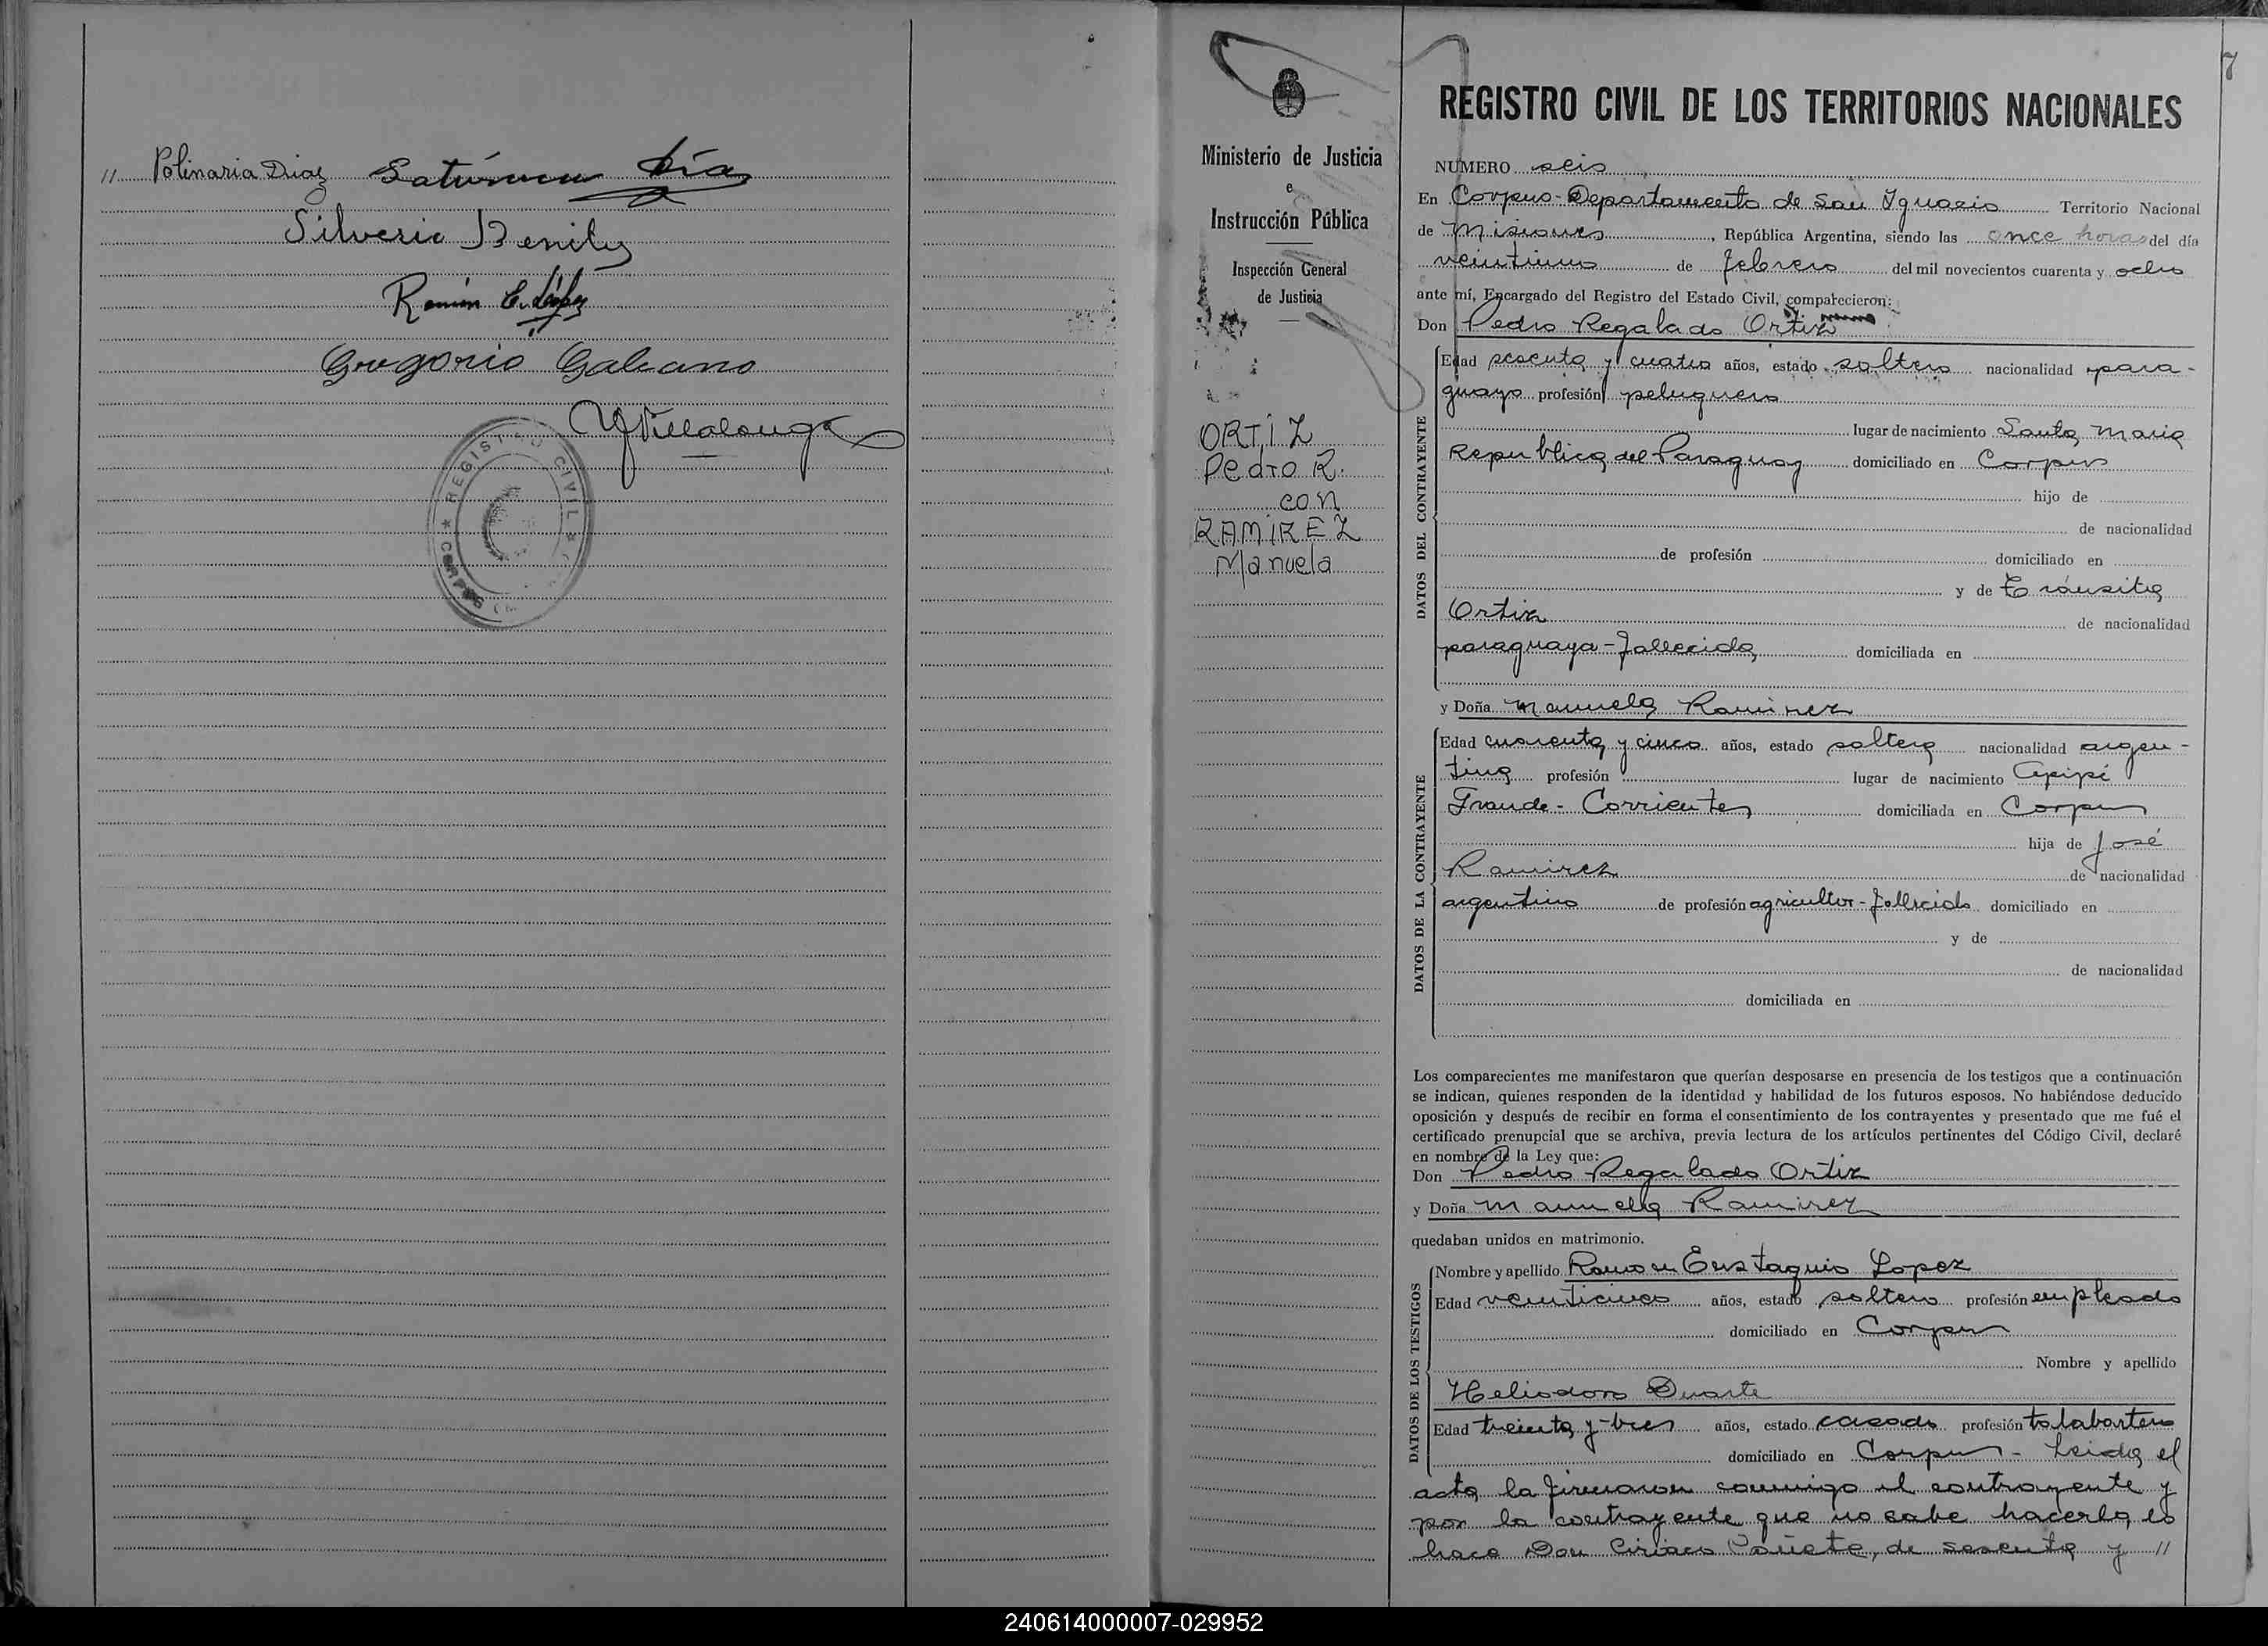 " Polinaria Diaz Saturnina Día
Silverio Benitez
Ramón E. López
Gregorio Galeano
Villalonga
REGISTRO CIVIL
CORPUS
7
Ministerio de Justicia
e
Instrucción Pública
Inspección General
de Justicia
ORTÍZ
Pedro R.
con
RAMIREZ
Manuela
REGISTRO CIVIL DE LOS TERRITORIOS NACIONALES
NUMERO seis
En Corpus-Departamento de San Ignacio Territorio Nacional
de Misiones, República Argentina, siendo las once horas del día
veintiuno de febrero del mil novecientos cuarenta y ocho
ante mí, Encargado del Registro del Estado Civil, comparecieron:
Don Pedro Regalado Ortiz
DATOS DEL CONTRAYENTE
Edad sesenta y cuatro años, estado soltero nacionalidad para-
guayo profesión peluquero
lugar de nacimiento Santa Maria
Republica del Paraguay domiciliado en Corpus
hijo de
de nacionalidad
de profesión domiciliado en
y de Tránsita
Ortiz de nacionalidad
paraguaya-fallecida domiciliada en
y Doña Manuela Ramirez
DATOS DE LA CONTRAYENTE
Edad cuarenta y cinco años, estado soltera nacionalidad argen-
tina profesión lugar de nacimiento Apipé
Grande- Corrientes domiciliada en Corpus
hija de José
Ramirez de nacionalidad
argentino de profesión agricultor-fallecido domiciliado en
y de
de nacionalidad
domiciliada en
Los comparecientes me manifestaron que querían desposarse en presencia de los testigos que a continuación
se indican, quienes responden de la identidad y habilidad de los futuros esposos. No habiéndose deducido
oposición y después de recibir en forma el consentimiento de los contrayentes y presentado que me fué el
certificado prenupcial que se archiva, previa lectura de los artículos pertinentes del Código Civil, declaré
en nombre de la Ley que:
Don Pedro Regalado Ortiz
y Doña Manuela Ramirez
quedaban unidos en matrimonio.
DATOS DE LOS TESTIGOS
Nombre y apellido Ramon Eustaquio Lopez
Edad veinticinco años, estado soltero profesión empleado
domiciliado en Corpus
Nombre y apellido
Heliodoro Duarte
Edad treinta y tres años, estado casado profesión talabartero
domiciliado en Corpus - Leida el
acta la firmaron conmigo el contrayente y
por la contrayente que no sabe hacerlo, lo
hace Don Ciriaco Cañete, de sesenta y //
240614000007-029952